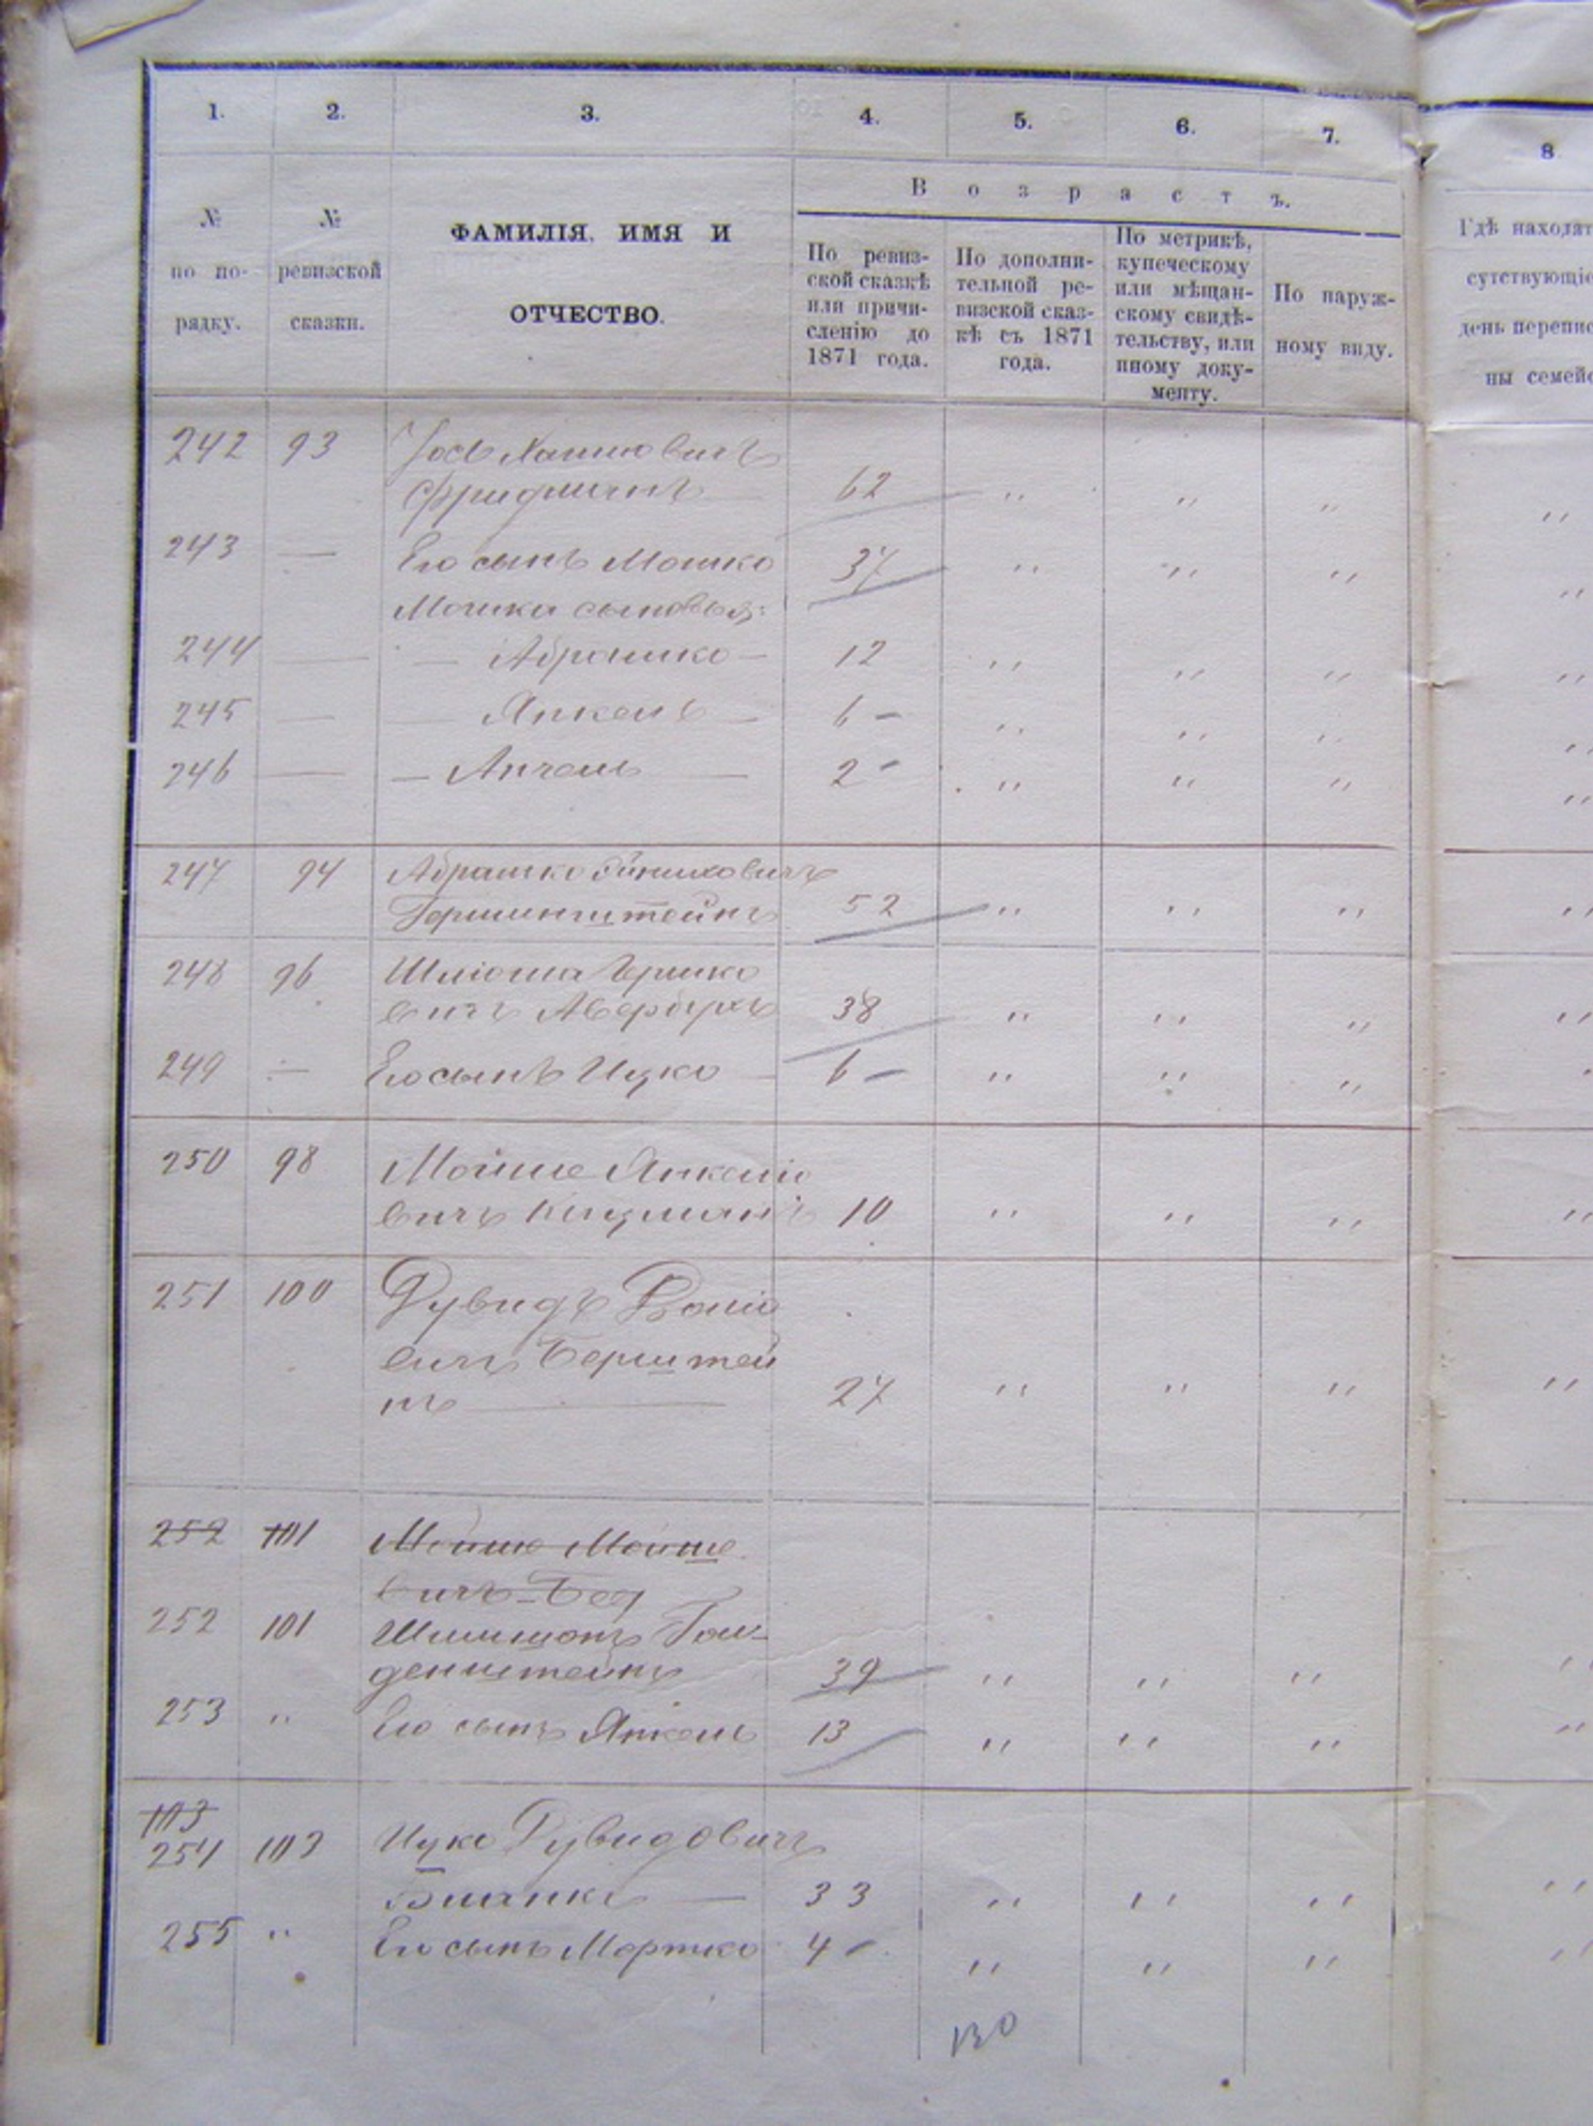 1. 2. 3. 4. 5. 6. 7. 8
№ по по-рядку.
№ ревизской сказки.
ФАМИЛІЯ, ИМЯ И
ОТЧЕСТВО.
Возрастъ.
По ревиз-
ской сказкѣ
или причи-
сленію до
1871 года.
По дополни-
тельной ре-
визской сказ-
кѣ съ 1871
года.
По метрикѣ,
купеческому
или мѣщан-
скому свидѣ-
тельству, или
иному доку-
менту.
По наруж-
ному виду.
Гдѣ находят
сутствующіе
день перепис
ны семейс
242 93 Іось
Фридманъ 62 " " " "
243 — Его сынъ Мошко 37 " " " "
Мошки сыновья:
244 — — Абрашко — 12 " " " "
245 — — Янкель — 6 – " " " "
246 — — Анчель — 2 – " " " "
247 94 Абрашко
52 " " " "
248 96 Шлиома Гершко
вичъ Авербухъ 38 " " " "
249 — Его сынъ Ицко — 6 – " " " "
250 98 Мойше Янкелио
вичъ 10 " " " "
251 100 Дувидъ
вичъ Берштей
нъ — 27 " " " "
252 101 Мойше
вичъ
252 101 Шлимонъ Гол-
денштейнъ 39 " " " "
253 " Его сынъ Янкель 13 " " " "
103
254 103 Ицко Дувидовичъ
Бланкъ — 33 " " " "
255 " Его сынъ Мортко 4 – " " " "
130